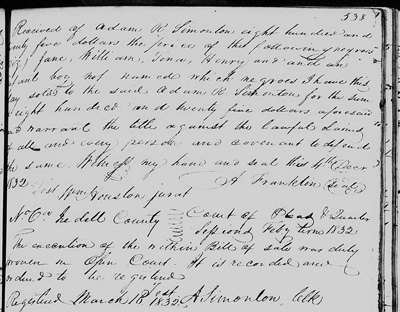 535
Received of Adam R Simonton eight hundred and
twenty five dollars the price of the following negroes
Jane, William, Iona, Henry and and an
infant boy not named which negroes I have this
day sold to the said Adam R Simonton for the sum
of eight hundred and twenty five dollars aforesaid
and warrant the title against the lawful claims
of all and every person and covenant to defend
the same Witness my hand and seal this 4th
1832
Test Wm Houston jurat A Franklin Seal
No Ca Iredell County Court of Pleas & Quarter
Sessions Feby term 1832
The execution of the within Bill of sale was duly
proven in Open Court It is recorded and
ordered to be registered
Registered March 18 1832 A Simonton Clk